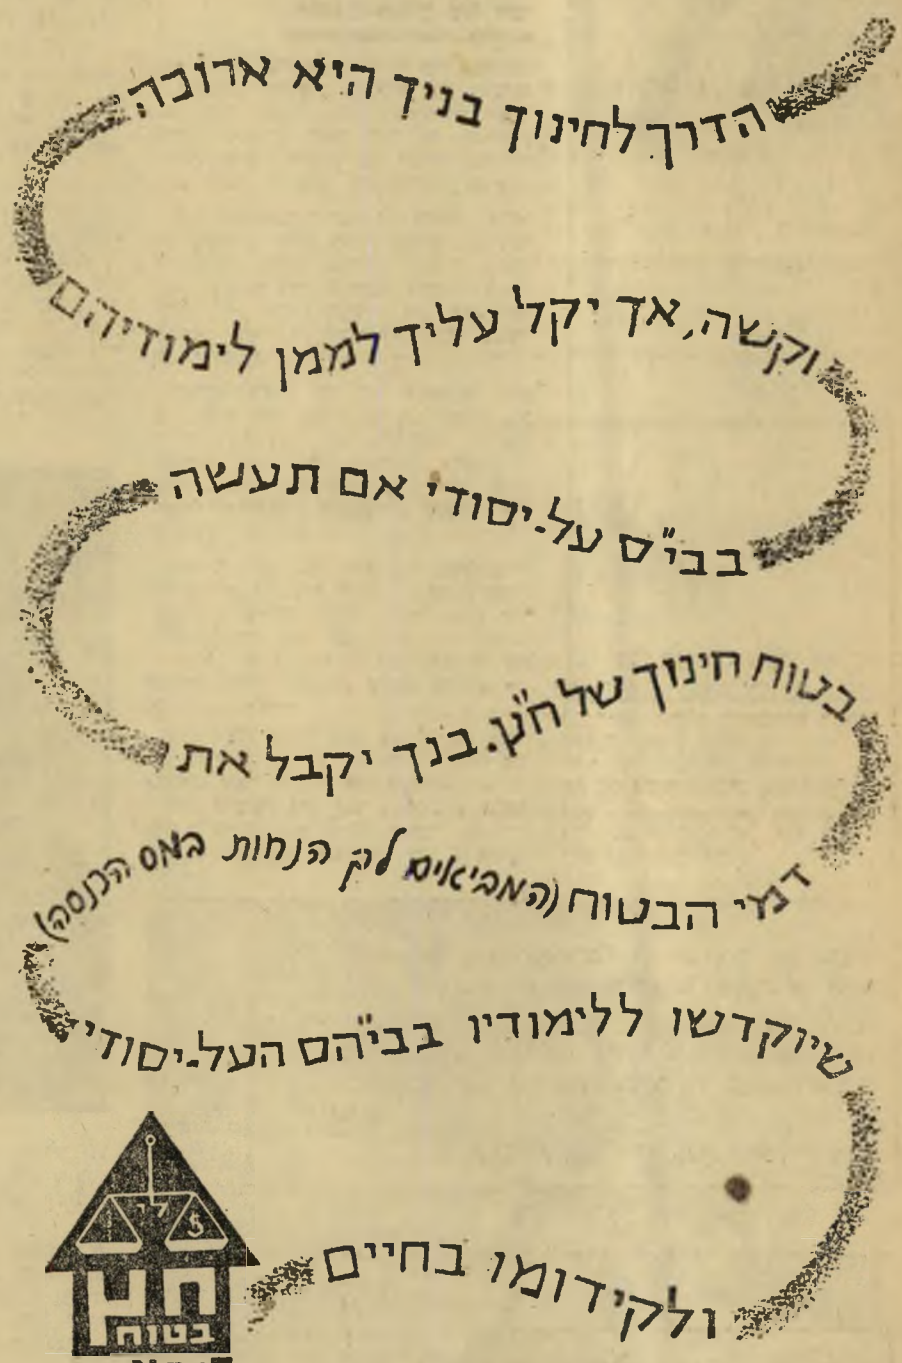 הדרך לחינוך בניך היא ארוכה
וקשה, אך יקל עליך לממן לימודיהם
בבי"ס על-יסודי אם תעשה
בטוח חינוך של ח"ץ. בנך יקבל את
דמי הבטוח (המביאים לך הנחות במס הכנסה)
שיוקדשו ללימודיו בבי"הס העל-יסודי
ולקידומו בחיים
חץ
בטוח